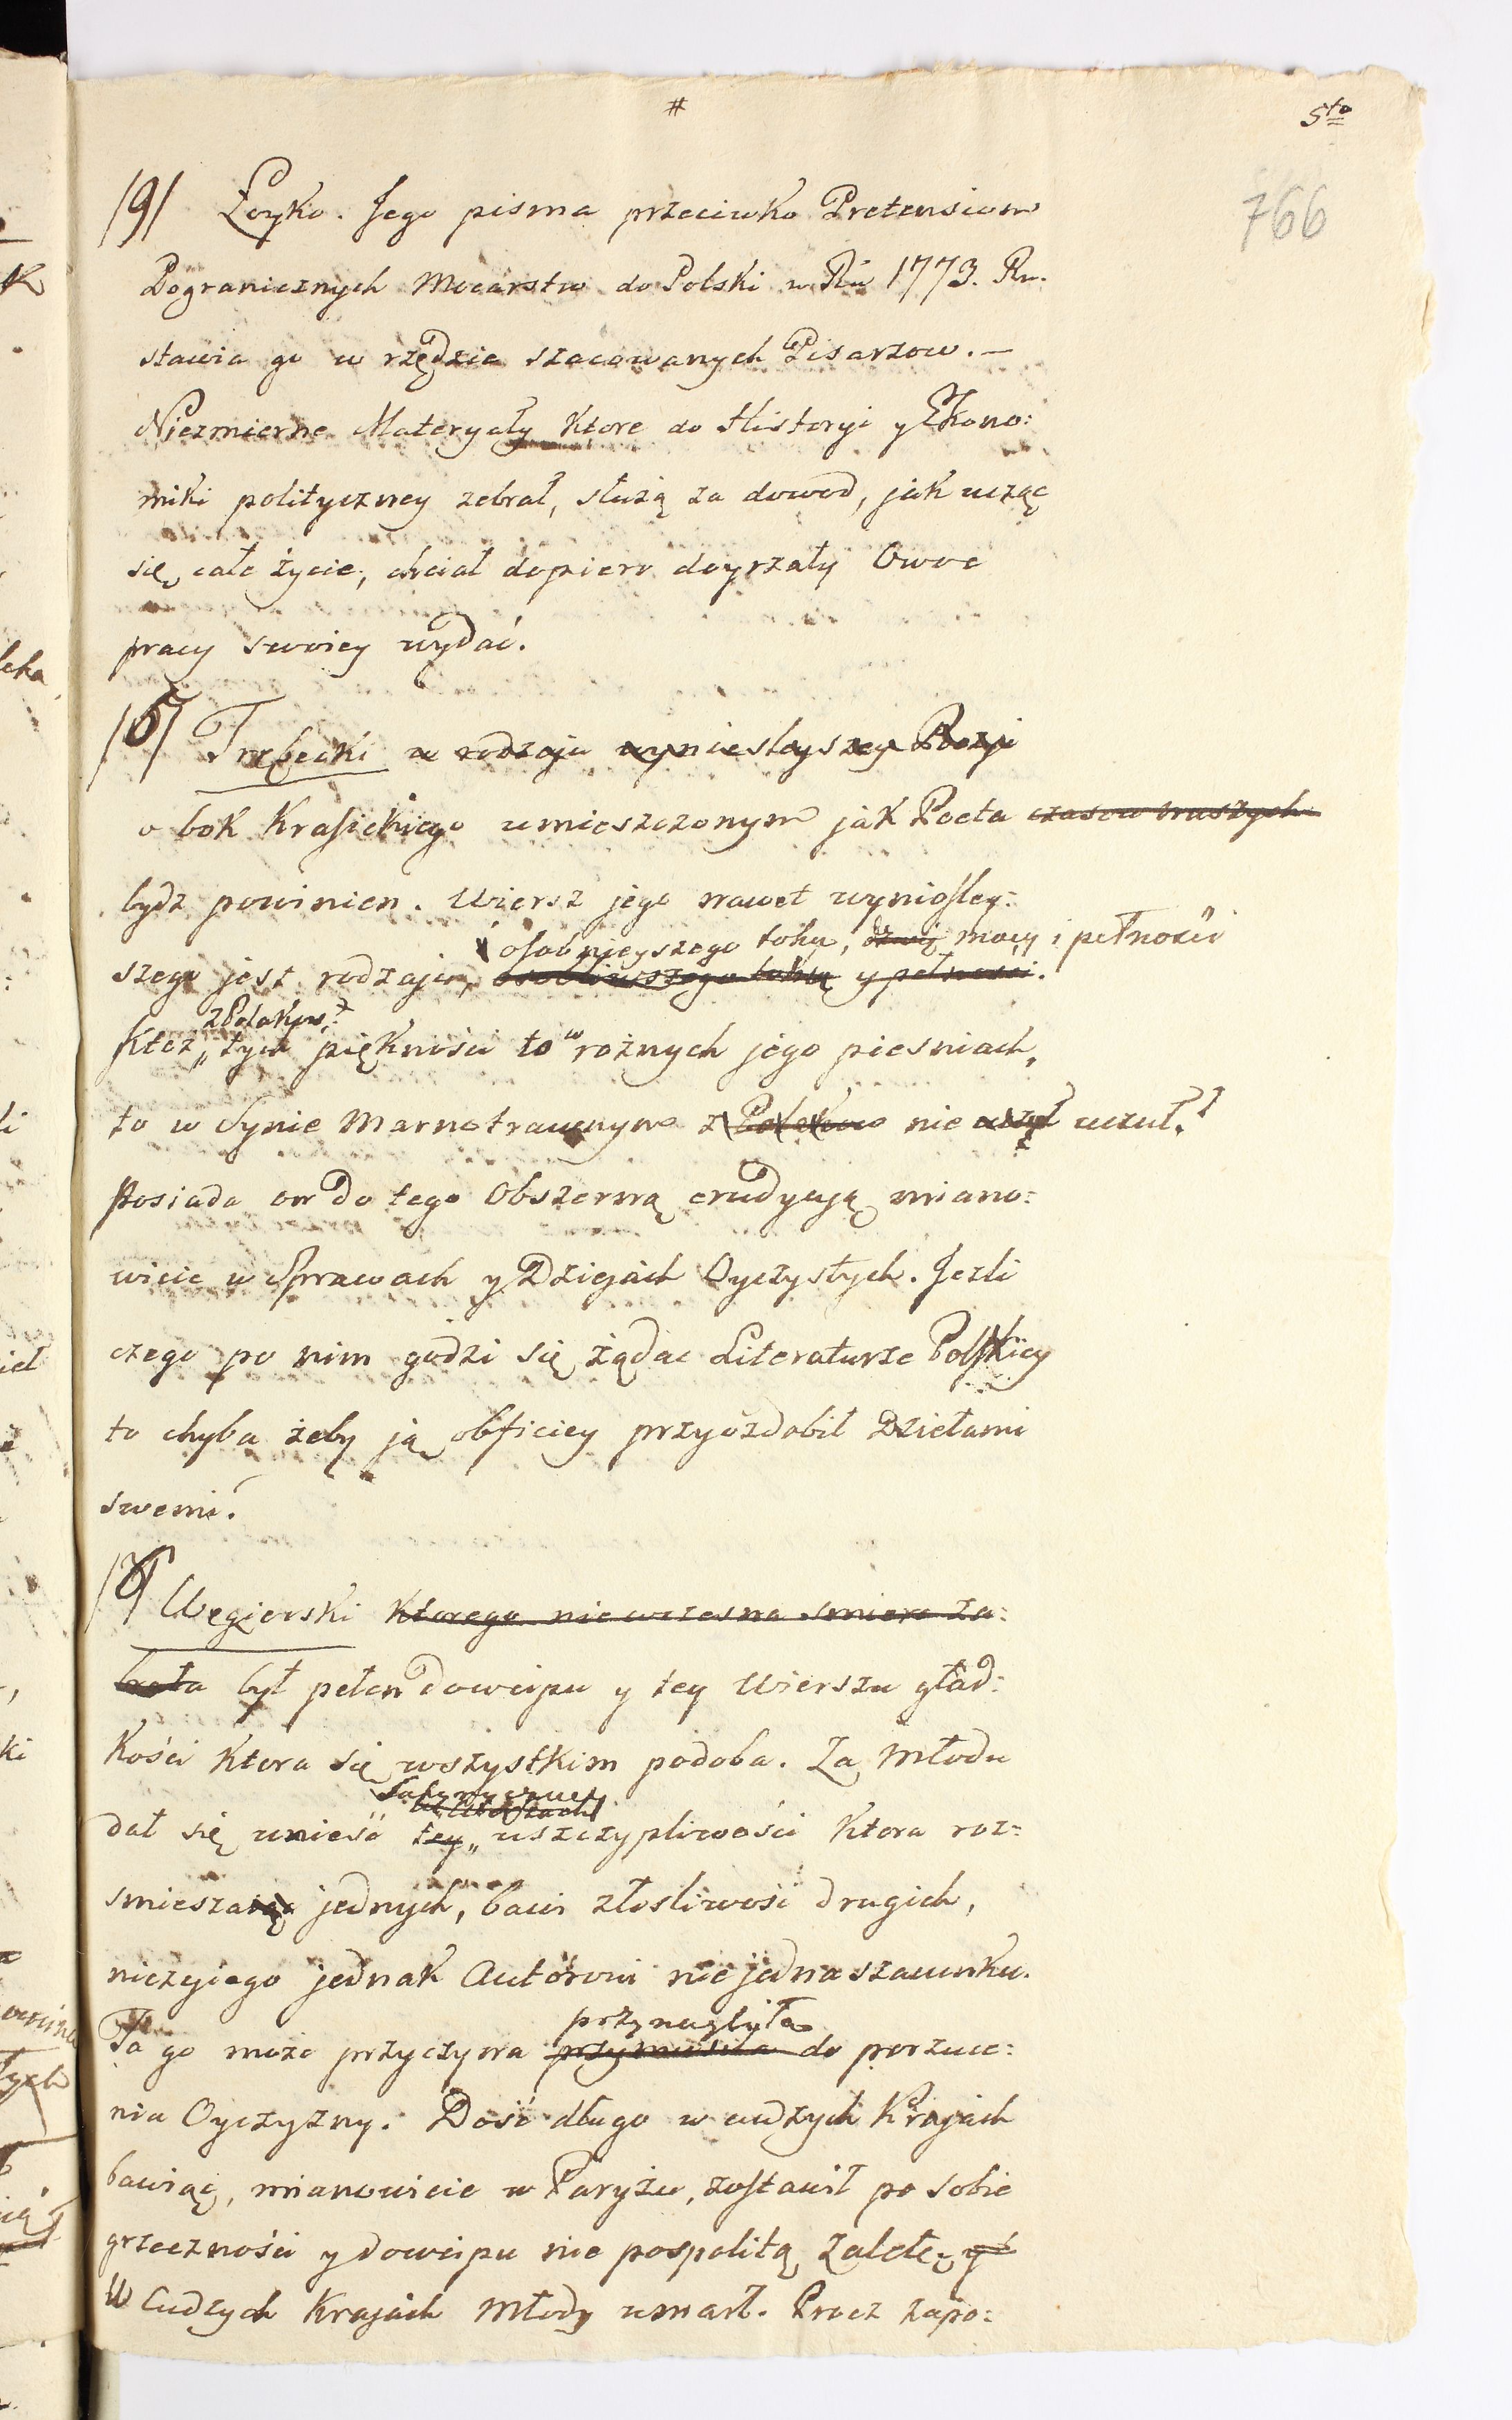 #
5to
766
/9/ Łoyko. Jego pisma przeciwko Pretensiom
Pogranicznych Mocarstw do Polski w Rú 1773. Rn.
stawia go w rzędzie szacowanych Pisarzow. —
Niezmierne Materyały ktore do Historyi y Ekono:
miki polityczney zebrał, służą za dowod, jak ucząc
się całe życie, chciał dopiero doyrzały Owoc
pracy swoiey wydać.
Trębecki w rodzaju wynioslyszey Poezyi
o bok Krasickiego umieszczonym jak Poeta czasow naszych
bydz powinien. Wiersz jego nawet wyniosley:
i osobnieyszego toku, mocy i pełności
szego jest rodzaju, osobliwszego toku y pełnosci.
z Polaków
Ktoż „ tych piękności to w rożnych jego piesniach,
to w Synie Marnotrawnym z Polakow nie uczuł?
Posiada on do tego Obszerną erudycyą miano:
wicie w Sprawach y Dziejach Oyczystych. Jezli
czego po nim godzi się żądac Literaturze Polskiey
to chyba żeby ją obficiey przyozdobił Dziełami
swemi.
Węgierski ktorego niewczesna smierc za:
brała był pełen dowcipu y tey Wierszu gład:
kości ktora się wszystkim podoba. Za młodu
Satyryczney
dał się unieść tey „ uszczypliwości ktora roz:
smieszaiąc jednych, bawi złosliwość drugich,
niczyiego jednak Autorowi nie jedna szacunku.
przynagliła
Ta go może przyczyna przymusiła do porzuce:
nia Oyczyzny. Dość długo w cudzych Krajach
bawiąc, mianowicie w Paryżu, zostawił po sobie
grzeczności y dowcipu nie pospolitą zaletę y
W Cudzych Krajach młody umarł. Procz zapo: